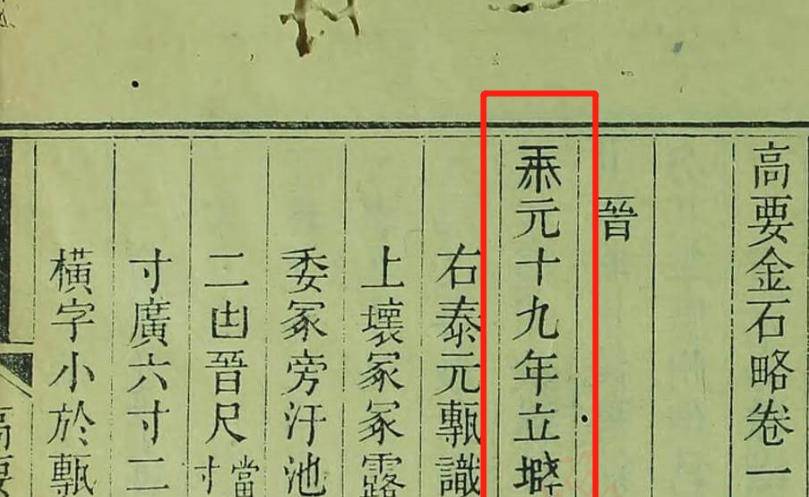 高要金石略卷一
晉
元十九年立
右泰元甎識
上壞冢冢露
委冢旁汙池
二凷晉尺當寸
寸廣六寸二
橫字小於甎
高要